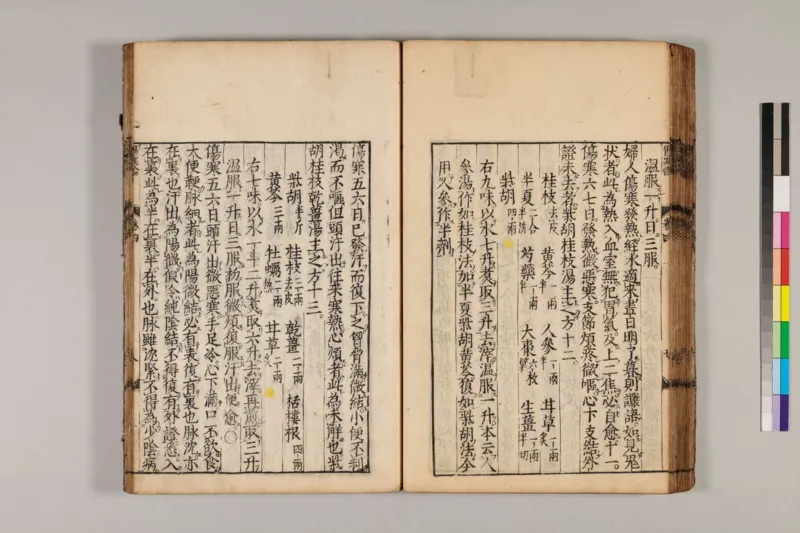 温服一升日三服
婦人傷寒發熱經水適來晝日明了暮則讝語如見鬼
狀者此為熱入血室無犯胃氣及上二焦必自愈十一
傷寒六七日發熱微惡寒支節煩疼微嘔心下支結外
證未去者柴胡桂枝湯主之方十二
桂枝去皮 黃芩一兩 人參一兩半 甘草一兩炙
半夏二合半洗 芍藥一兩半 大棗六枚擘 生薑一兩半切
柴胡四兩
右九味以水七升煑取三升去滓温服一升本云人
參湯作如桂枝法加半夏柴胡黃芩復如柴胡法今
用人參作半劑
傷寒五六日已發汗而復下之胷脅滿微結小便不利
渴而不嘔但頭汗出往来寒熱心煩者此為未解也柴
胡桂枝乾薑湯主之方十三
柴胡半斤 桂枝三兩去皮 乾薑二兩 栝樓根四兩
黃芩三兩 牡蠣二兩熬 甘草二兩炙
右七味以水一斗二升煑取六升去滓再煎取三升
温服一升日三服初服微煩復服汗出便愈
傷寒五六日頭汗出微惡寒手足冷心下滿口不欲食
大便鞕脉細者此為陽微結必有表復有裏也脉沈亦
在裏也汗出為陽微假令純陰結不得復有外證悉入
在裏此為半在裏半在外也脉雖沈緊不得為少陰病